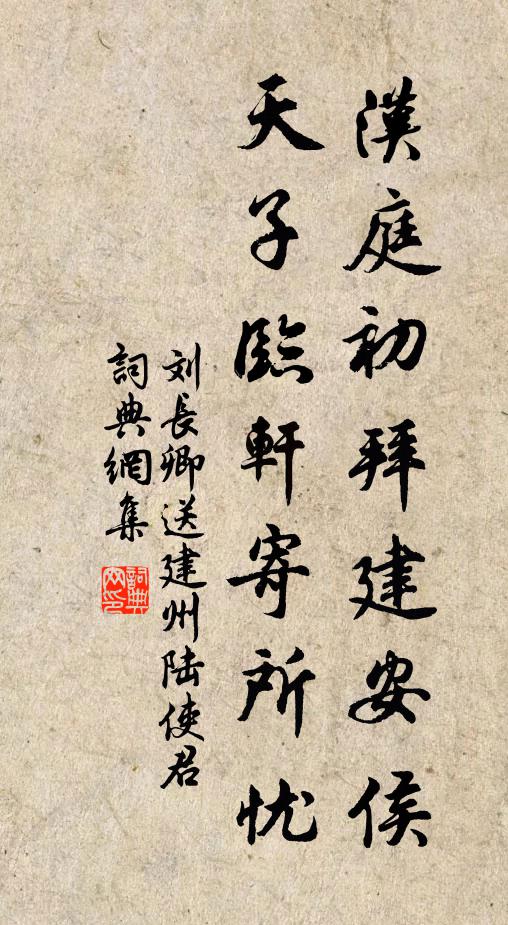 漢庭初拜建安侯
天子臨軒寄所忧
刘長卿送建州陆使君
詞典網集
詞典
网印